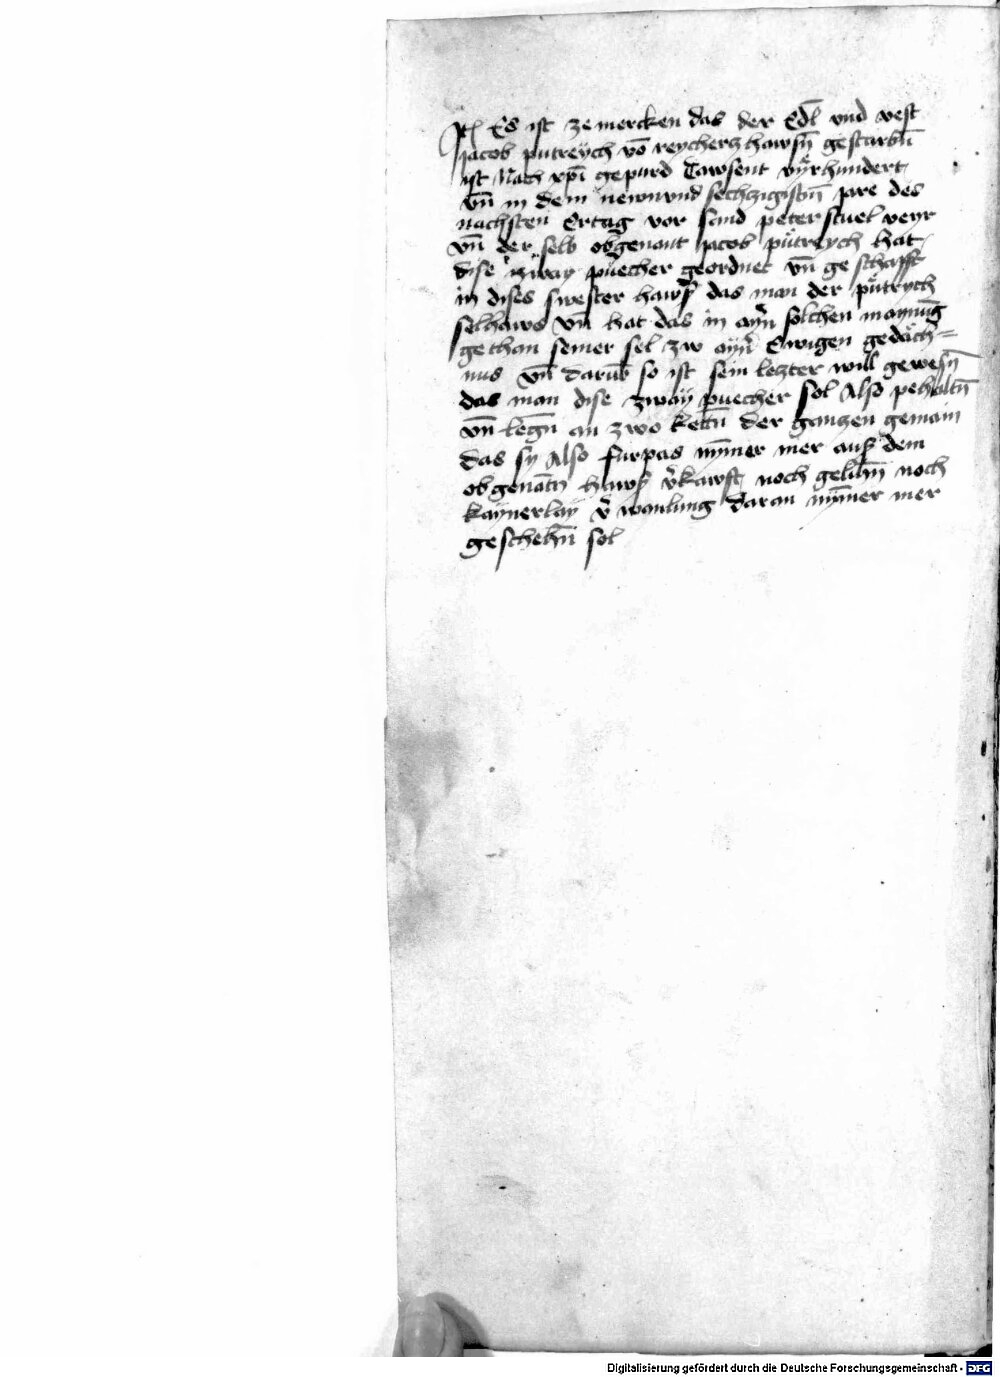 Itē Es ist ze mercken das der Edl vnd vest
jacob putreych vō reycherczhawsn̄ gestarbn̄
ist Nach xpī gepurd Tawsent vyerhundert
vn̄ in dem newnvnd sechzigistn̄ jare des
nachsten Ertag vor sand peter stuel veyr
vn̄ der selb obgenant jacob pütreych hat
dise zway puecher geordnet vn̄ geschafft
in dises swester hawß das man der pütrych
selhaws vn̄ hat das in ayn̄ solchen maynūg
gethan seiner sel zw ayn̄ Ewigen gedäch=
nus vn̄ darūb so ist sein leczter will gewesn̄
das man dise zwaÿ puecher sol Also pehaltn̄
vn̄ legn̄ an zwo kettn̄ der ganczen gemain
das sy Also furpas nym̄er mer auß dem
obgenātn hawß v̄kawfft noch gelihn̄ noch
kaÿnerlaÿ v̄wanlung daran nym̄er mer
geschehn̄ sol
Digitalisierung gefördert durch die Deutsche Forschungsgemeinschaft - DFG